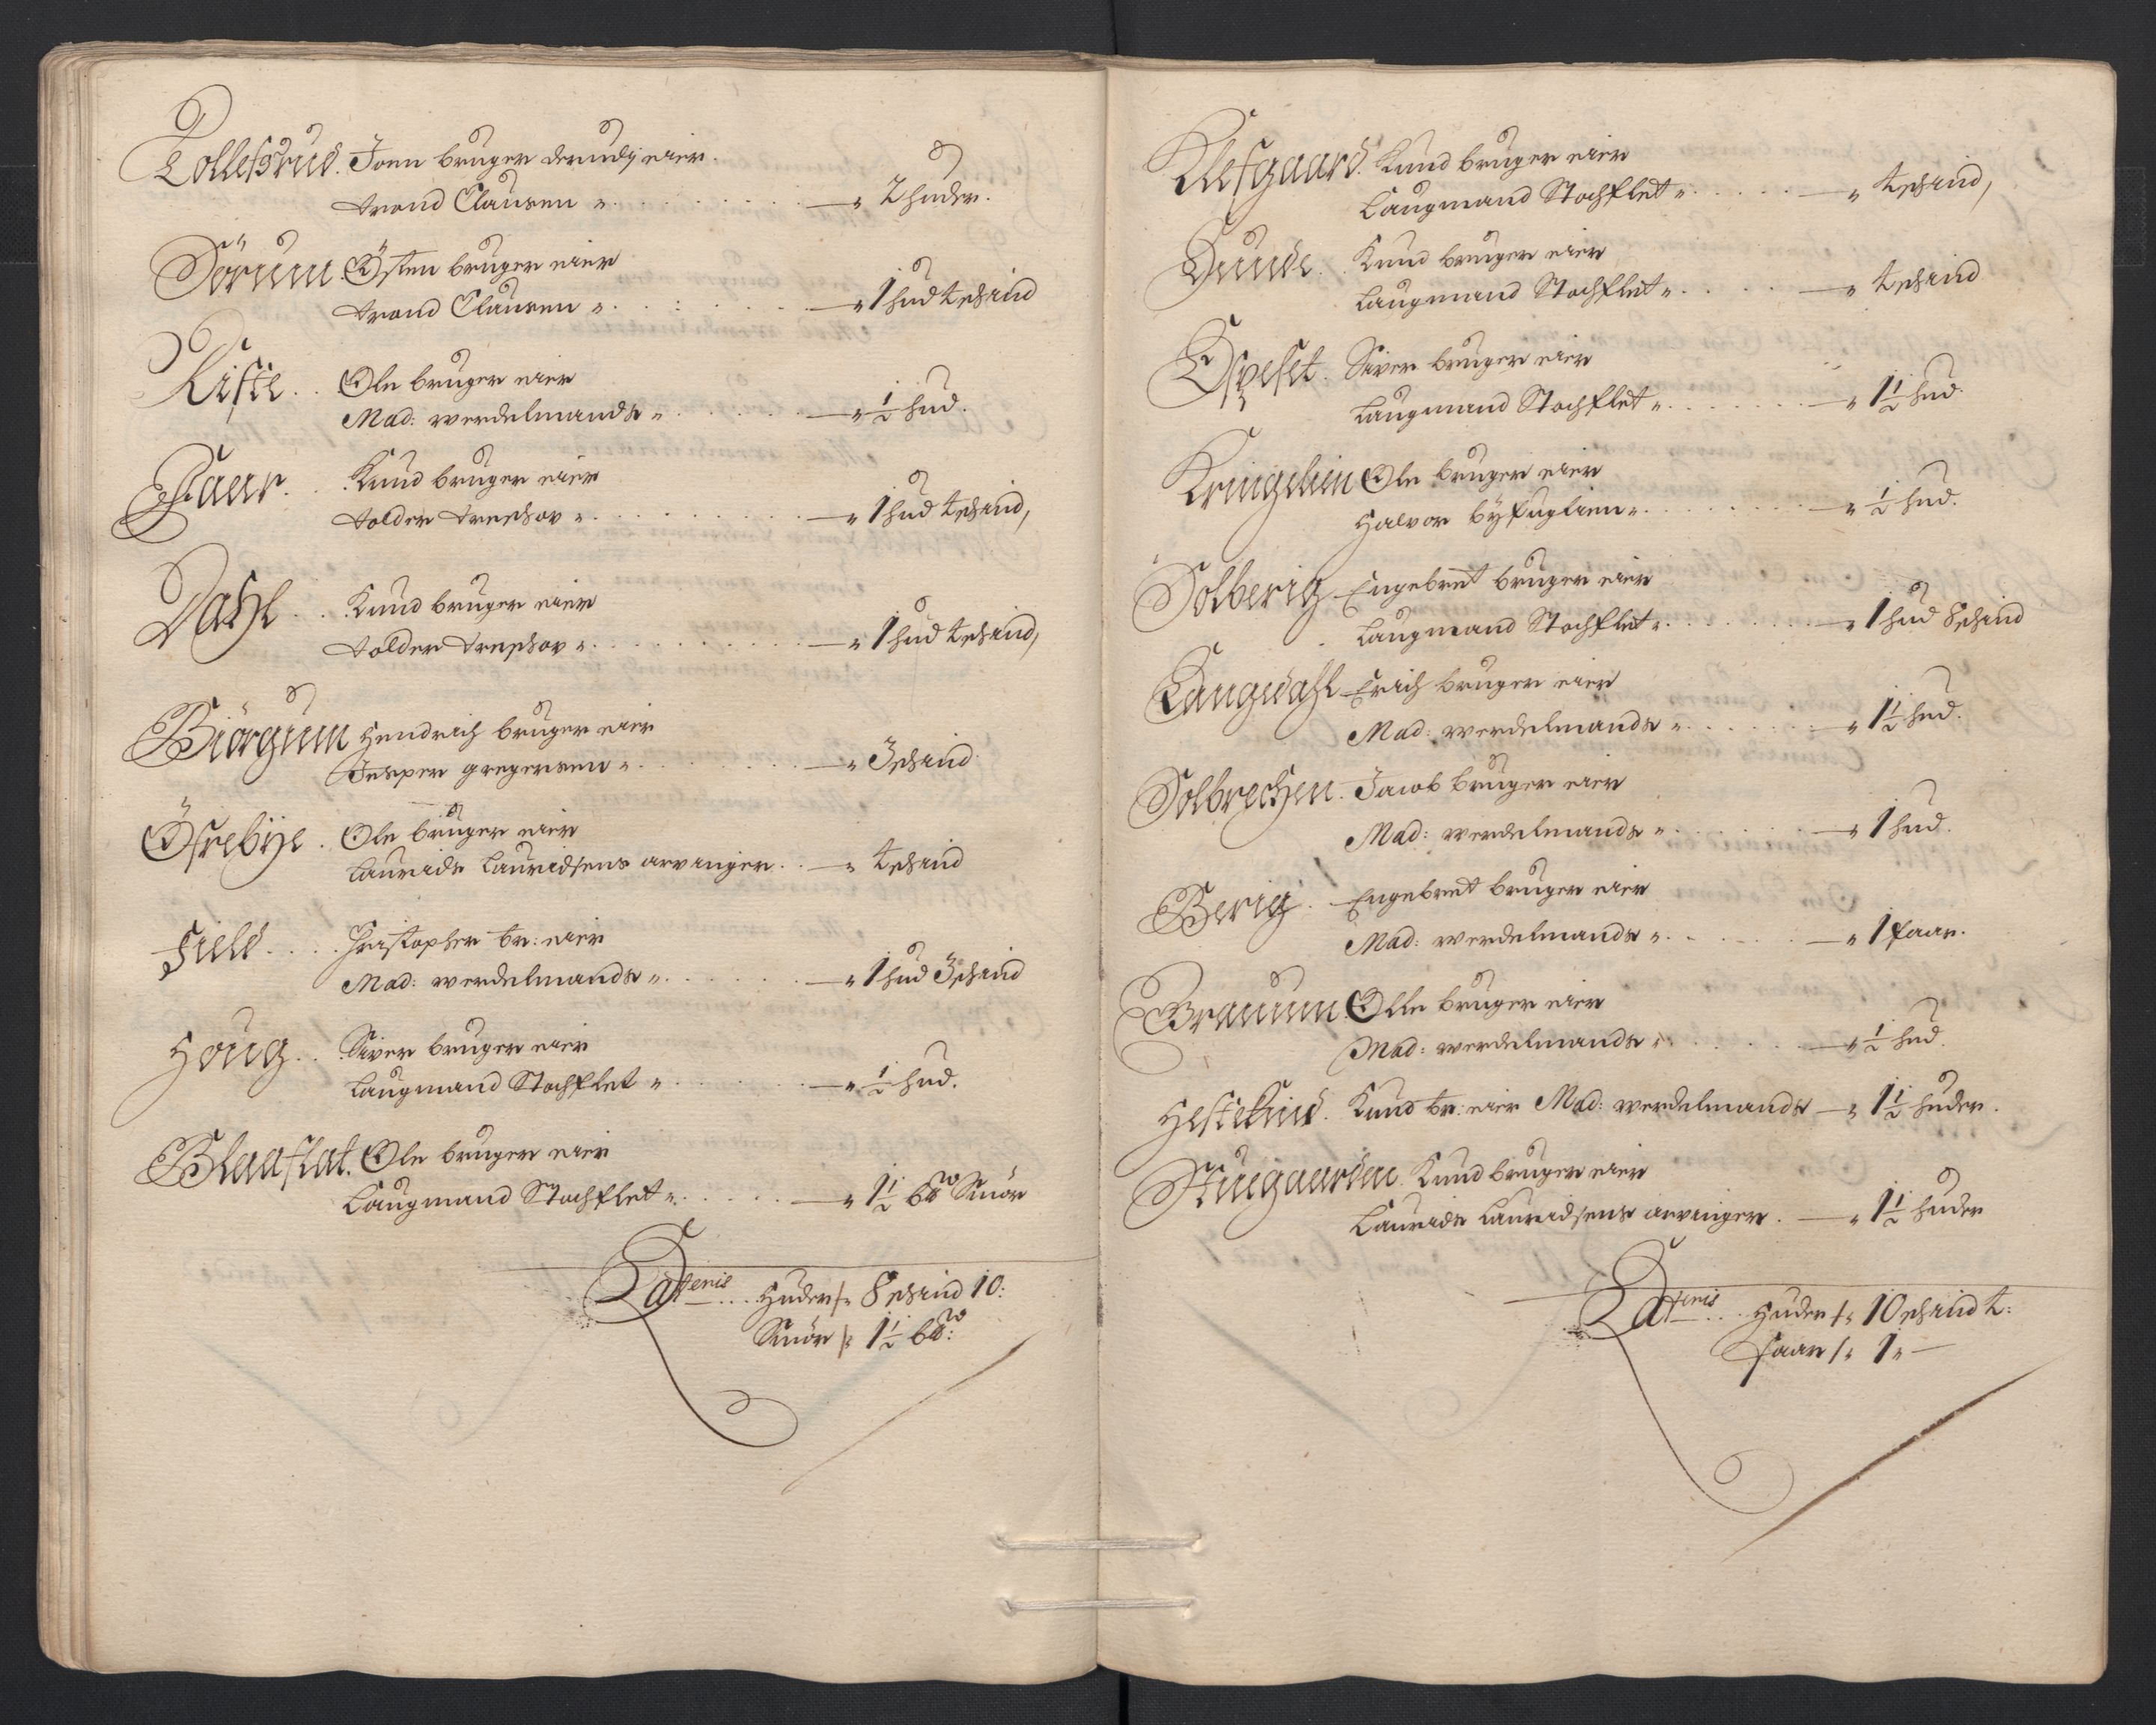 Tollefsrud. Joen bruger derudj eier.
trond Clausen „ . . . . . . . — „ 2 huder.
Sörum. Östen bruger eier
trond Clausen „ . . : . . . — „ 1 hud 4 schind
Riste . . Ole bruger eier
Mad: werdelmands „ . . . . . — „ ½ hud.
Gaar. . Knud bruger eier
tolder treschov „ . . . . . . . — „ 1 hud 4 schind,
Dahl . . Knud bruger eier
tolder treschov „ . . . . . . . — „ 1 hud 4 schind,
Biörgum Hendrich bruger eier
Jesper gregersen „ . . . . . . — „ 3 schind
Öfrebÿe . Ole bruger eier
Laurids Lauridsens arvinger . . — „ 4 schind
Field . . . . Christopher br: eier
Mad: werdelmands „ . . . . . . — „ 1 hud 3 schind
Houg . . Siver bruger eier
Laugmand Stochflet „ . . . . . — „ ½ hud.
Blaaflat. Ole bruger eier
Laugmand Stochflet „ . . . . . — „ 1½ b℔ Smör
Lateris . . . Huder /: 8 schind 10:
Smör /: 1½ b℔:
Klefgaard. Knud bruger eier
Laugmand Stochflet „ . . . . . — „ 4 schind,
Qunde . . Knud bruger eier
Laugmand Stochflet „ . . . . . — „ 4 schind
Espeset . Siver bruger eier
Laugmand Stochflet „ . . . . . . — „ 1½ hud.
Kringelien Ole bruger eier
Halvor bÿfuglien „ . . . . . . . — „ ½ hud.
Solberig Engebret bruger eier
Laugmand Stochflet „ . . . . . . — „ 1 hud 8 schind
Langedahl Erich bruger eier
Mad: werdelmands „ . . . . . . — „ 1½ hud.
Solbrechen . Jacob bruger eier
Mad: werdelmands „ . . . . . . — „ 1 hud.
Berig . Engebret bruger eier
Mad: werdelmands „ . . . . . — „ 1 faar.
Bramum. Olle bruger eier
Mad: werdelmands „ . . . . . — „ ½ hud.
Hestekind . Knud br: eier Mad: werdelmands — „ 1½ huder.
Stuegaarden . Knud bruger eier
Laurids Lauridsens arvinger . — „ 1½ huder
Lateris . . Huder /: 10 schind 4:
faar /: 1 „ —